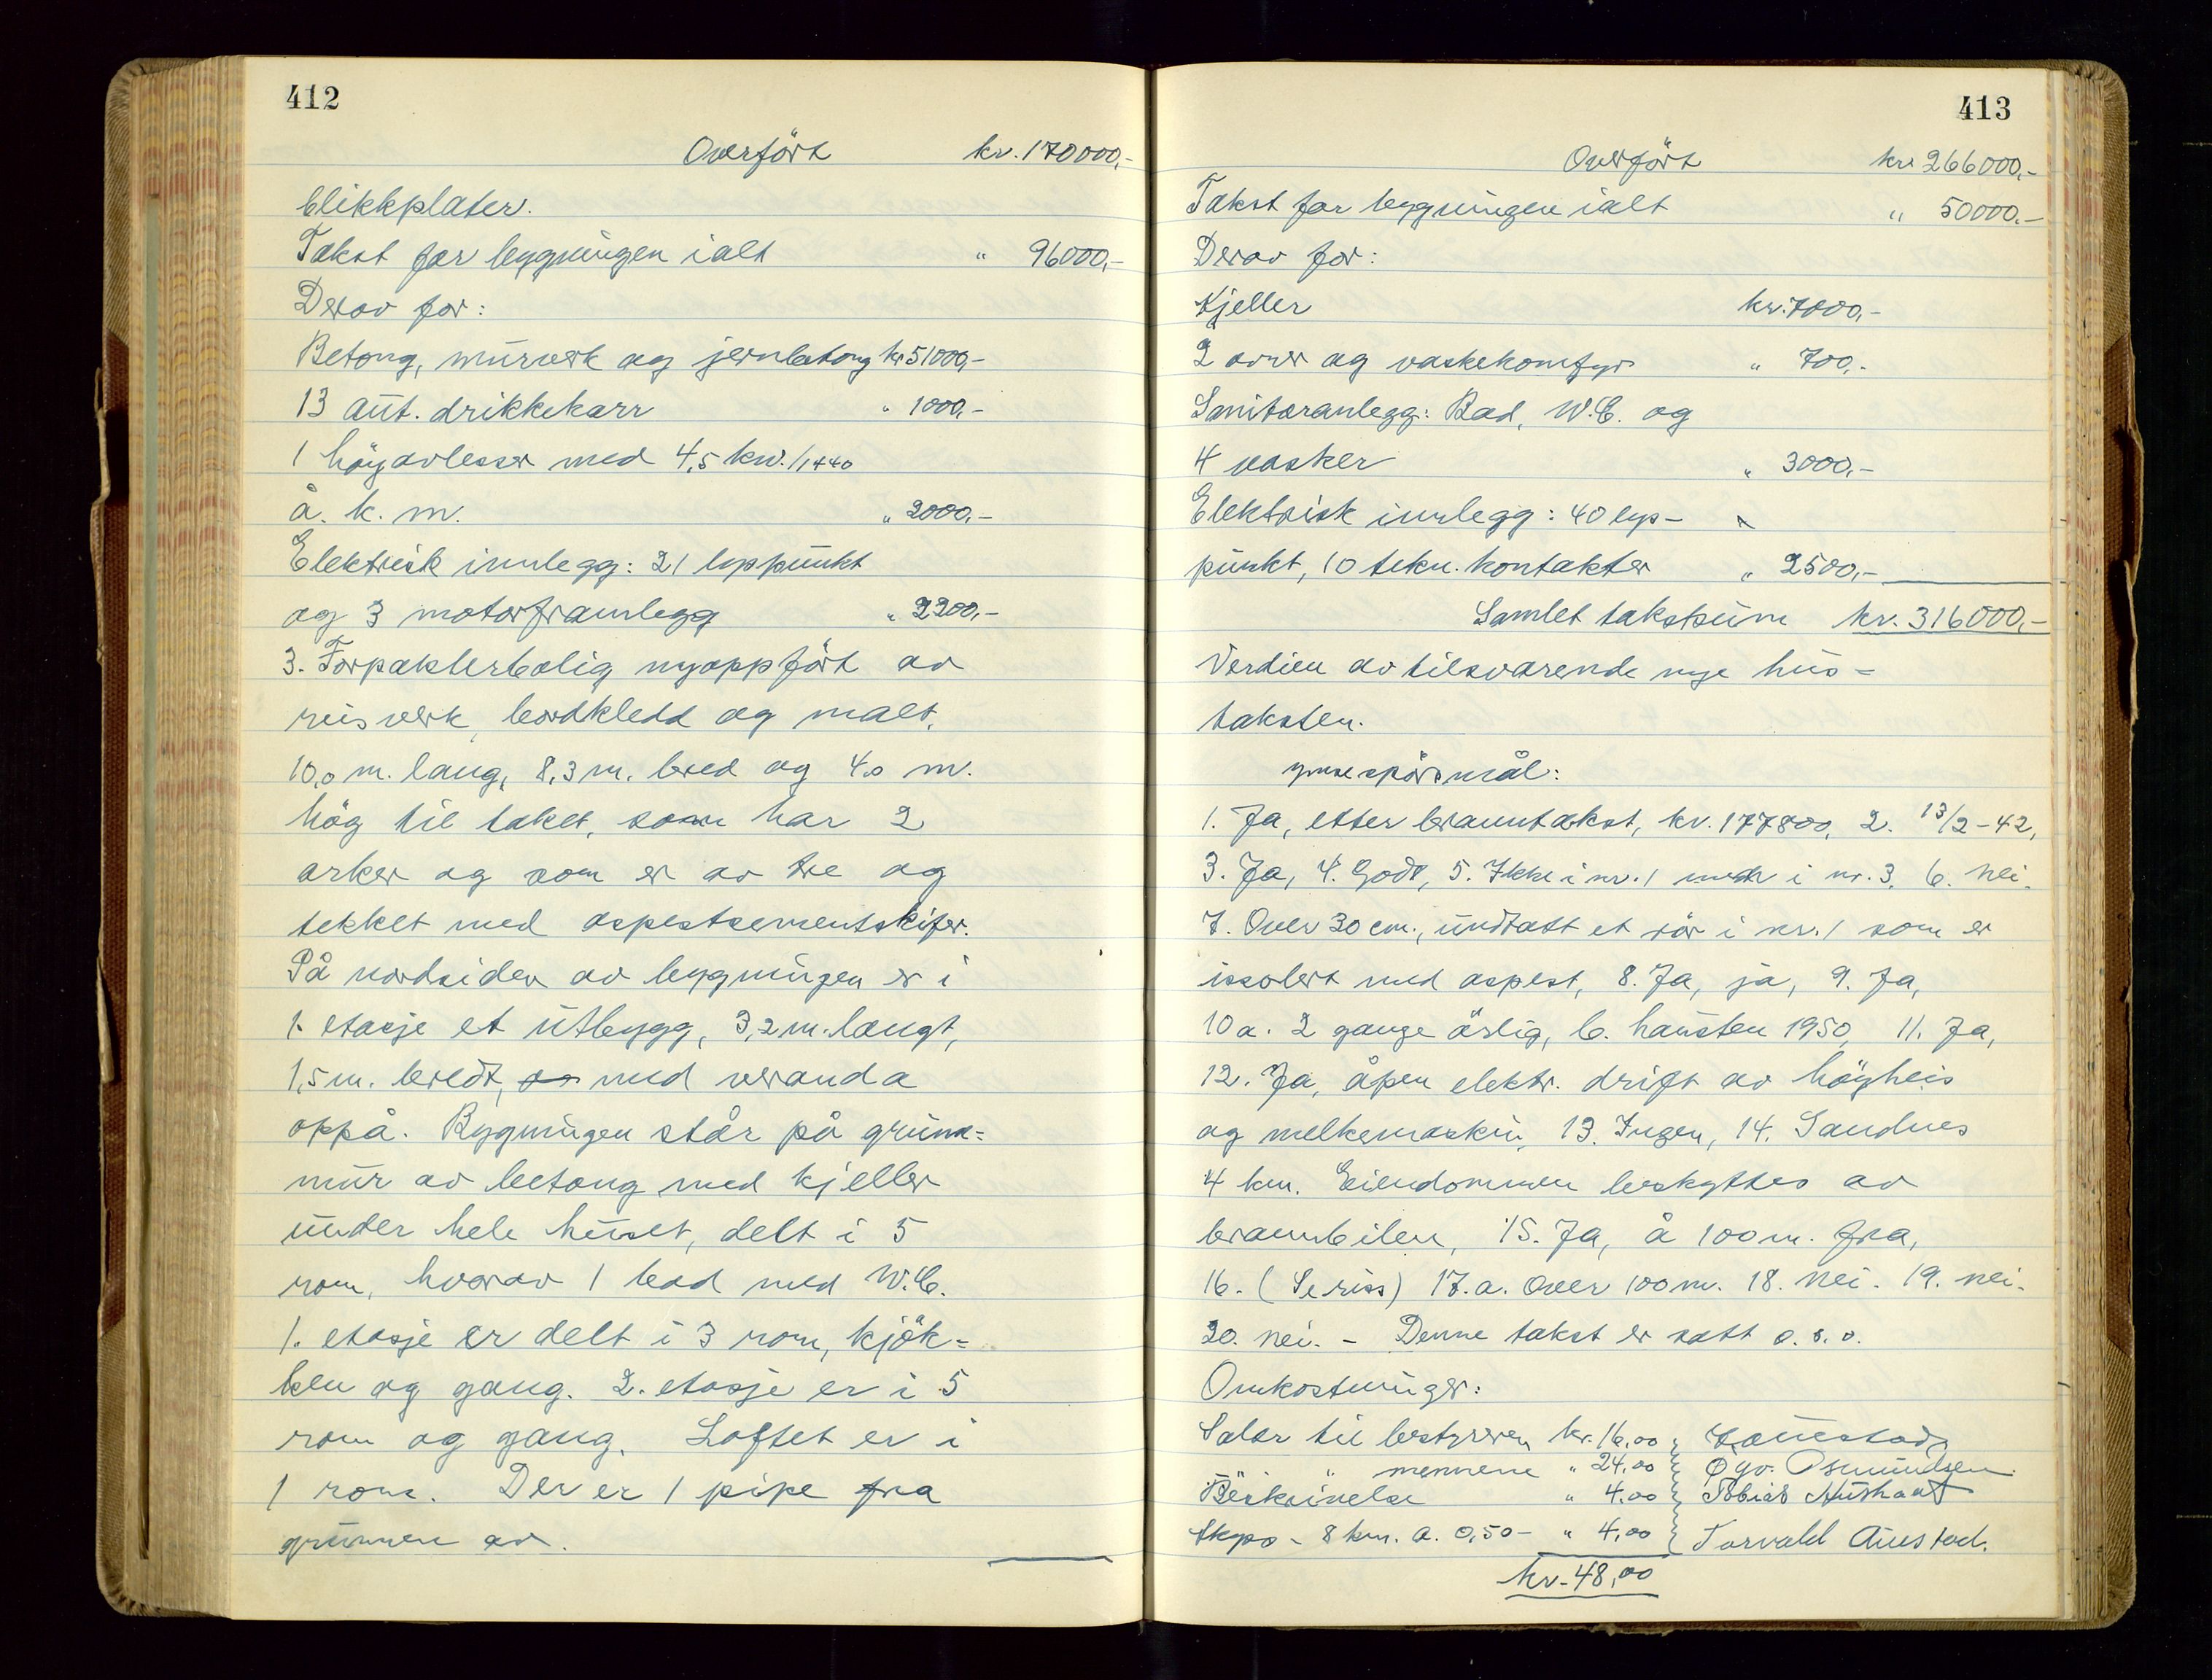 412
Overført kr. 170000,-
blikkplater.
Takst for bygningen ialt " 96000,-
Derav for:
Betong, murverk og jernbetong kr 51000,-
13 aut. drikkekarr " 1000,-
1 høyavlesser med 4,5 kw. 1/1440
å. k. m. " 2000,-
Elektrisk innlegg: 21 lyspunkt
og 3 motorframlegg " 2200,-
3. Forpakterbolig nyoppført av
reisverk, bordkledd og malt,
10,0 m. lang, 8,3 m. bred og 4,0 m.
høg til taket, som har 2
arker og som er av tre og
tekket med aspestsementskifer.
På nordsiden av bygningen er i
1. etasje et utbygg, 3,2 m. langt,
1,5 m. bredt, med veranda
oppå. Bygningen står på grunn=
mur av betong med kjeller
under hele huset, delt i 5
rom, hvorav 1 bad med W.C.
1. etasje er delt i 3 rom, kjøk=
ken og gang. 2. etasje er i 5
rom og gang. Loftet er i
1 rom. Der er 1 pipe fra
grunnen av.
413
Overført kr. 266000,-
Takst for bygningen ialt " 50000,-
Derav for:
Kjeller kr. 7000,-
2 ovner og vaskekomfyr " 700,-
Sanitæranlegg: Bad, W.C. og
4 vasker " 3000,-
Elektrisk innlegg: 40 lys-
punkt, 10 tekn. kontakter " 2500,-
Samlet takstsum kr. 316000,-
Verdien av tilsvarende nye hus =
taksten.
ymse spørsmål:
1. Ja, etter branntakst, kr. 177800, 2. 13/2-42,
3. Ja, 4. Godt, 5. Ikke i nr. 1 men i nr. 3, 6. Nei.
7. Over 30 cm., undtatt et rør i nr. 1 som er
issolert med aspest, 8. Ja, ja, 9. Ja,
10 a. 2 gange årlig, b. hausten 1950, 11. Ja,
12. Ja, åpen elektr. drift av høyheis
og melkemaskin, 13. Ingen, 14. Sandnes
4 km. Eiendommen beskyttes av
brannbilen, 15. Ja, å 100 m. fra,
16. (Se riss) 17. a. Over 100 m. 18. Nei. 19. Nei.
20. Nei. - Denne takst er satt o. s. v.
Omkostninger:
Salær til bestyreren kr. 16,00
" mennene " 24,00 Ogv. Osmundsen
Beskrivelse " 4,00 Tobias
Skyss - 8 km. a. 0,50 - " 4,00 Torvald Austad.
kr. 48,00